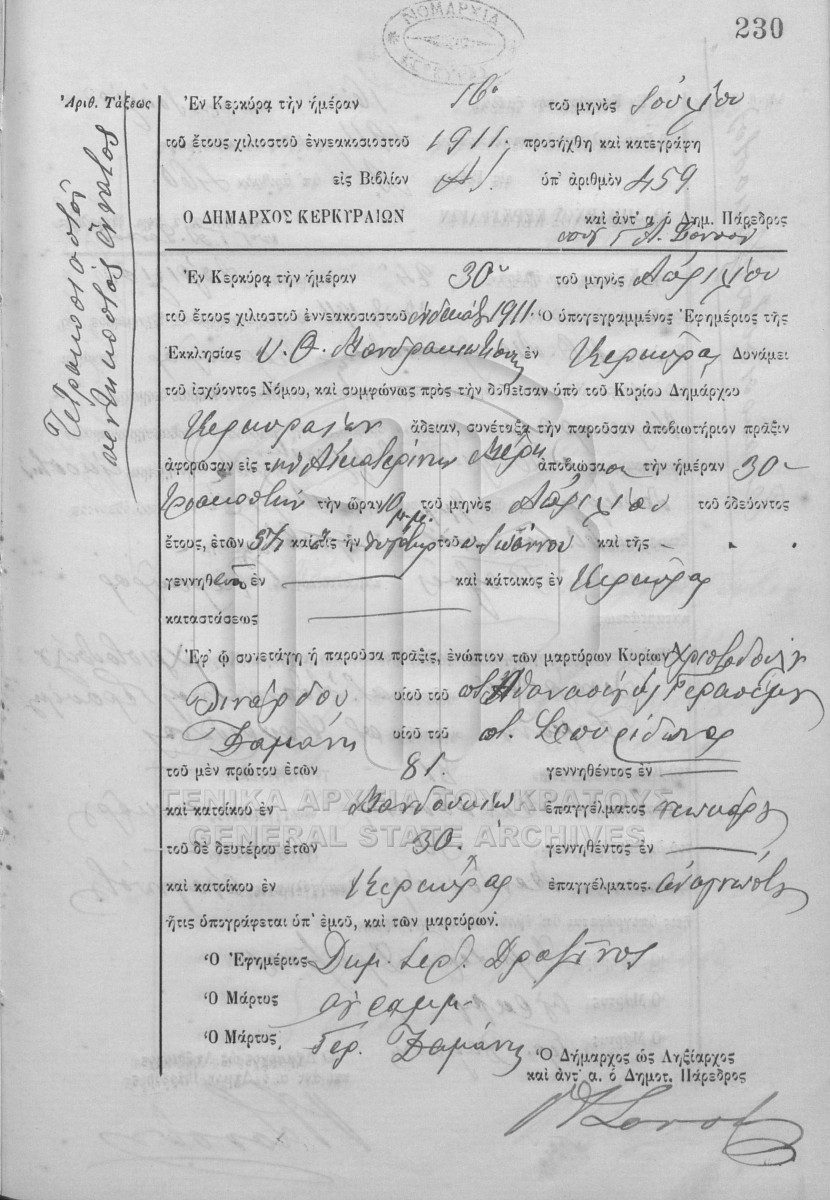 230
ΝΟΜΑΡΧΙΑ
ΚΕΡΚΥΡΑΣ
Ἀριθ. Τάξεως
Τετρακοσιοστὸν
πεντηκοστὸν ἔννατον
Ἐν Κερκύρᾳ τὴν ἡμέραν 16 τοῦ μηνὸς Ἰουλίου
τοῦ ἔτους χιλιοστοῦ ἐννεακοσιοστοῦ 1911 προσήχθη καὶ κατεγράφη
εἰς Βιβλίον ὑπ' ἀριθμὸν 459
Ο ΔΗΜΑΡΧΟΣ ΚΕΡΚΥΡΑΙΩΝ καὶ ἀντ' α ὁ Δημ. Πάρεδρος
Ἐν Κερκύρᾳ τὴν ἡμέραν 30 τοῦ μηνὸς Ἀπριλίου
τοῦ ἔτους χιλιοστοῦ ἐννεακοσιοστοῦ ἑνδεκάτου 1911. Ὁ ὑπογεγραμμένος Ἐφημέριος τῆς
Ἐκκλησίας Υ. Θ. Μανδρακιωτίσσης ἐν Κερκύρᾳ Δυνάμει
τοῦ ἰσχύοντος Νόμου, καὶ συμφώνως πρὸς τὴν δοθεῖσαν ὑπὸ τοῦ Κυρίου Δημάρχου
Κερκυραίων ἄδειαν, συνέταξα τὴν παροῦσαν ἀποβιωτήριον πρᾶξιν
ἀφορῶσαν εἰς τὴν Αἰκατερίνην ἀποβιώσασαν τὴν ἡμέραν 30
τριακοστὴν τὴν ὥραν μ.μ. τοῦ μηνὸς Ἀπριλίου τοῦ ὁδεύοντος
ἔτους, ἐτῶν καὶ τις ἦν θυγάτηρ τοῦ Ἰωάννου καὶ τῆς
γεννηθεῖσα ἐν καὶ κάτοικος ἐν Κερκύρᾳ
καταστάσεως
Ἐφ' ᾧ συνετάγη ἡ παροῦσα πρᾶξις, ἐνώπιον τῶν μαρτύρων Κυρίων Χριστοδούλου
Λινάρδου υἱοῦ τοῦ π. Ἀθανασίου καὶ Γερασίμου
Δαμάνη υἱοῦ τοῦ π. Σπυρίδωνος
τοῦ μὲν πρώτου ἐτῶν 81. γεννηθέντος ἐν
καὶ κατοίκου ἐν Μανδουκίῳ ἐπαγγέλματος
τοῦ δὲ δευτέρου ἐτῶν 30. γεννηθέντος ἐν
καὶ κατοίκου ἐν Κερκύρᾳ ἐπαγγέλματος. ἀναγνώστου
ἥτις ὑπογράφεται ὑπ' ἐμοῦ, καὶ τῶν μαρτύρων.
Ὁ Ἐφημέριος Δημ. Ἱερ.
Ὁ Μάρτυς ἀγράμμ.
Ὁ Μάρτυς Γερ. Δαμάνης
Ὁ Δήμαρχος ὡς Ληξίαρχος
καὶ ἀντ' α. ὁ Δημοτ. Πάρεδρος
ΓΕΝΙΚΑ ΑΡΧΕΙΑ ΤΟΥ ΚΡΑΤΟΥΣ
GENERAL STATE ARCHIVES